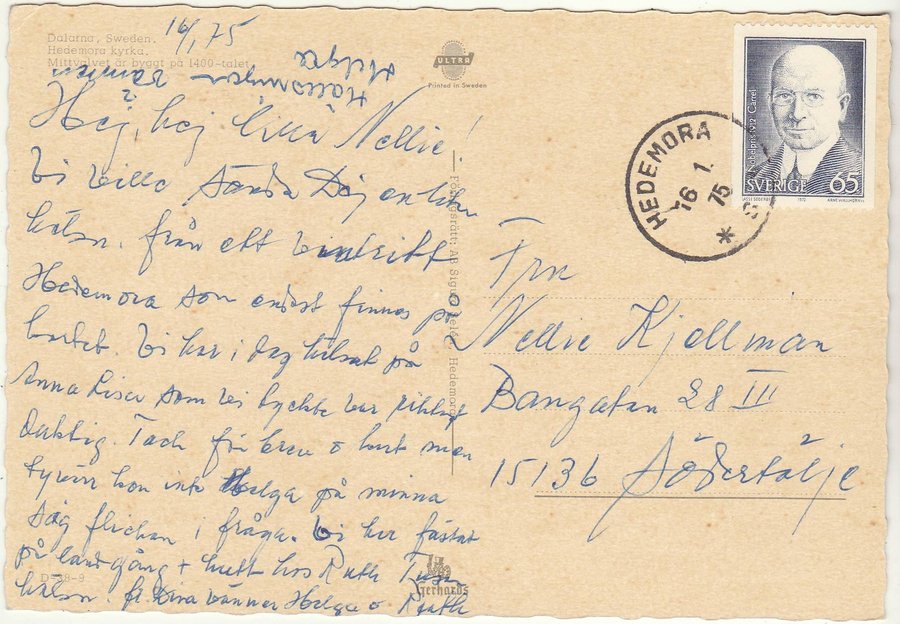 Dalarna, Sweden.
Hedemora kyrka.
Mittvalvet är byggt på 1400-talet
16/1 75
Helga
Hej, hej lilla Nellie!
Vi ville sända Dej en liten
hälsn. från ett
Hedemora som endast finnes på
kortet. Vi har i dag hälsat på
Anna Lisa som vi tyckte var riktigt
Tack för brev o kort men
tyvärr kan inte Helga på minna
sig flickan i fråga. Vi har fästat
på landgång + hos Ruth
hälsn. fr Dina vänner Helga o Ruth
ULTRA
Printed in Sweden
Hedemora
D 538-9
Gerhards
HEDEMORA
16 1. 75
*
Nobelpris 1912 Carrel
SVERIGE 65
1972
Fru
Nellie Kjellman
Bangatan 28 III
15136 Södertälje